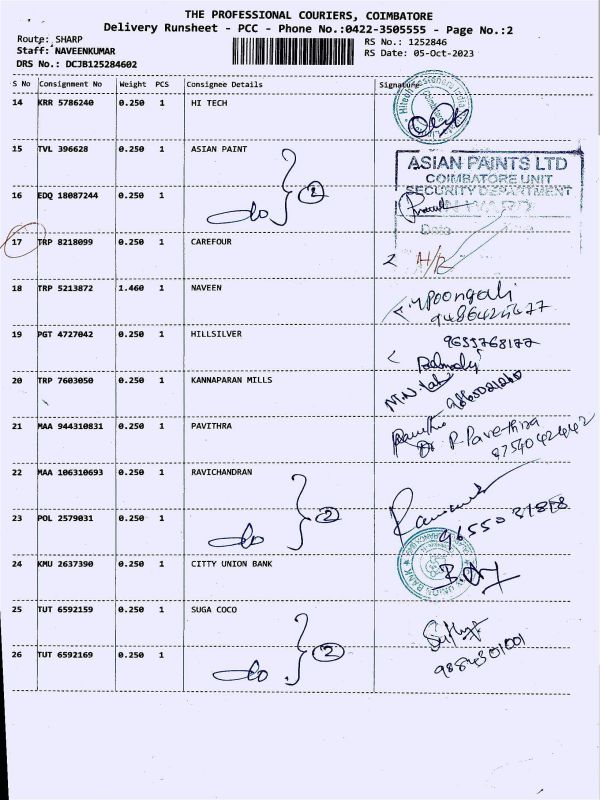 THE PROFESSIONAL COURIERS, COIMBATORE
Delivery Runsheet - PCC - Phone No.:0422-3505555 - Page No.:2
Route: SHARP
RS No.: 1252846
Staff: NAVEENKUMAR
RS Date: 05-Oct-2023
DRS No.: DCJB125284602
S No Consignment No Weight PCS Consignee Details Signature
14 KRR 5786240 0.250 1 HI TECH
15 TVL 396628 0.250 1 ASIAN PAINT
ASIAN PAINTS LTD
COIMBATORE UNIT
SECURITY DEPARTMENT
INWARD
Date
16 EDQ 18087244 0.250 1 do 2
17 TRP 8218099 0.250 1 CAREFOUR
18 TRP 5213872 1.460 1 NAVEEN
19 PGT 4727042 0.250 1 HILLSILVER
20 TRP 7603050 0.250 1 KANNAPARAN MILLS
21 MAA 944310831 0.250 1 PAVITHRA
Dr. R. Pavethra
8754042442
22 MAA 106310693 0.250 1 RAVICHANDRAN
23 POL 2579031 0.250 1 do 2
24 KMU 2637390 0.250 1 CITTY UNION BANK
25 TUT 6592159 0.250 1 SUGA COCO
26 TUT 6592169 0.250 1 do 2